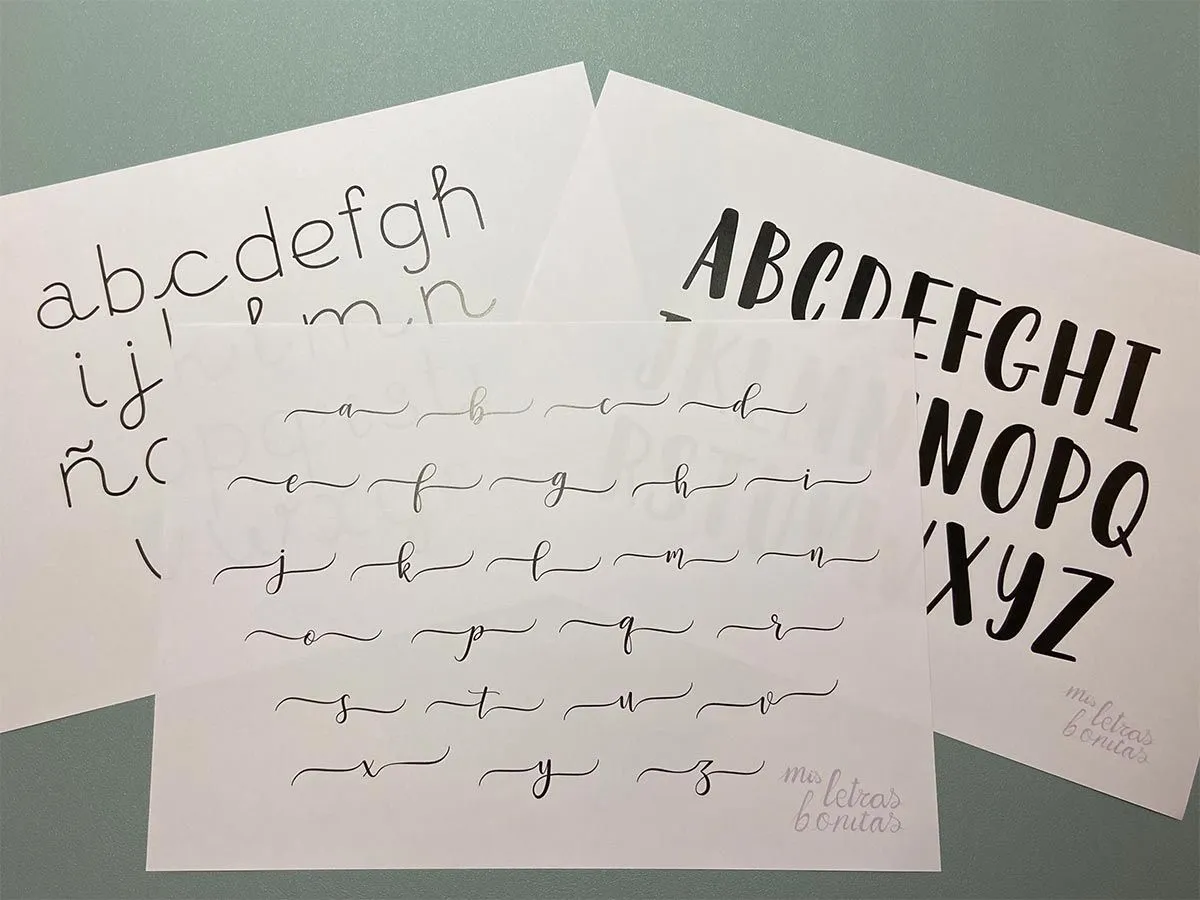 abcdefgh
ij
m n
ñ
ABCDEFGHI
NOPQ
XYZ
mis letras
bonitas
a b c d
e f g h i
j k l m n
o p q r
s t u v
x y z
mis letras
bonitas